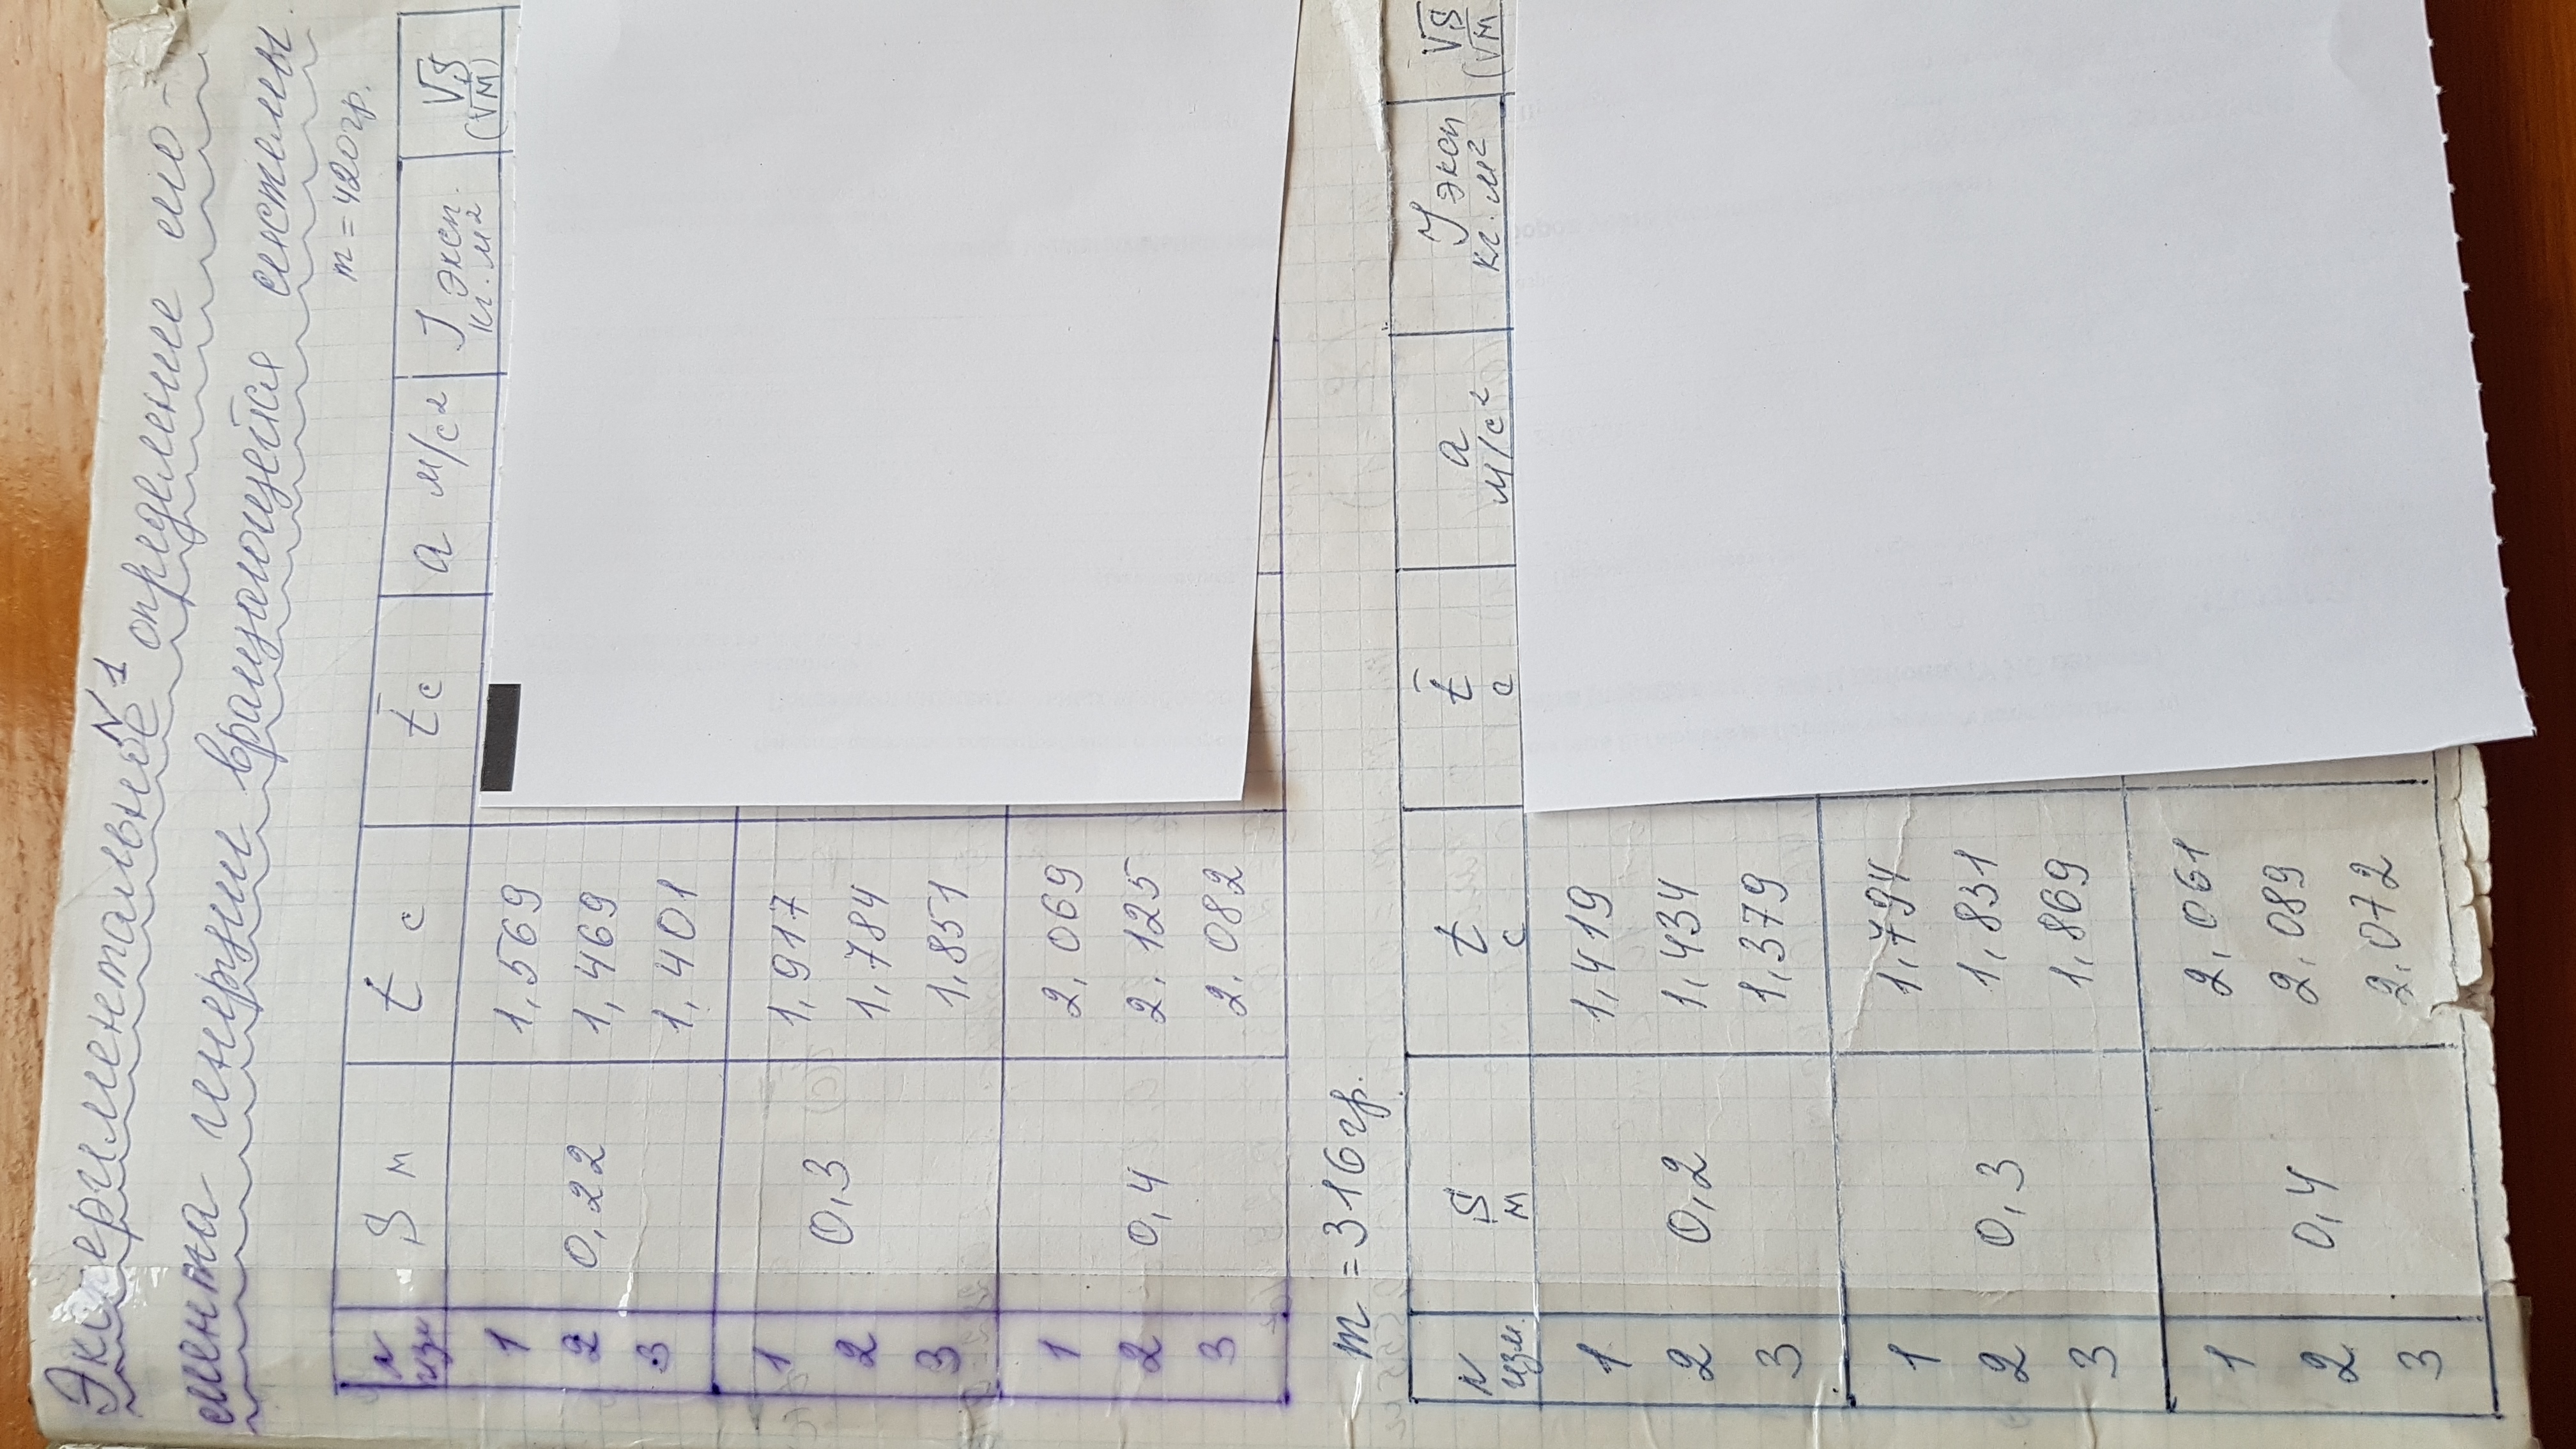 N 1
Экспериментальное определение мо-
мента инерции вращающейся системы.
m = 420 гр.
N изм S м t с t̄ с a м/с² J эксп. кг. м² √S (√м)
1 1,569
2 0,22 1,469
3 1,401
1 1,917
2 0,3 1,784
3 1,851
1 2,069
2 0,4 2.125
3 2.082
m = 316 гр.
N изм. S м t с t̄ с a м/с² J эксп кг. м² √S (√м
1 1,419
2 0,2 1,434
3 1,379
1 1,794
2 0,3 1,831
3 1,869
1 2,061
2 0,4 2,089
3 2,072